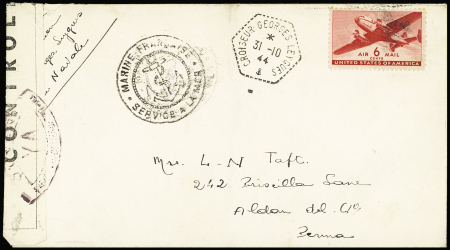 CONTROL
Navale
MARINE FRANÇAISE
SERVICE A LA MER
CROISEUR GEORGES LEYGUES
*
31-10
44
AIR 6 MAIL
CENTS
UNITED STATES OF AMERICA
Mrs. L-N Taft.
242 Priscilla Lane
Aldan del. Cte
Penna